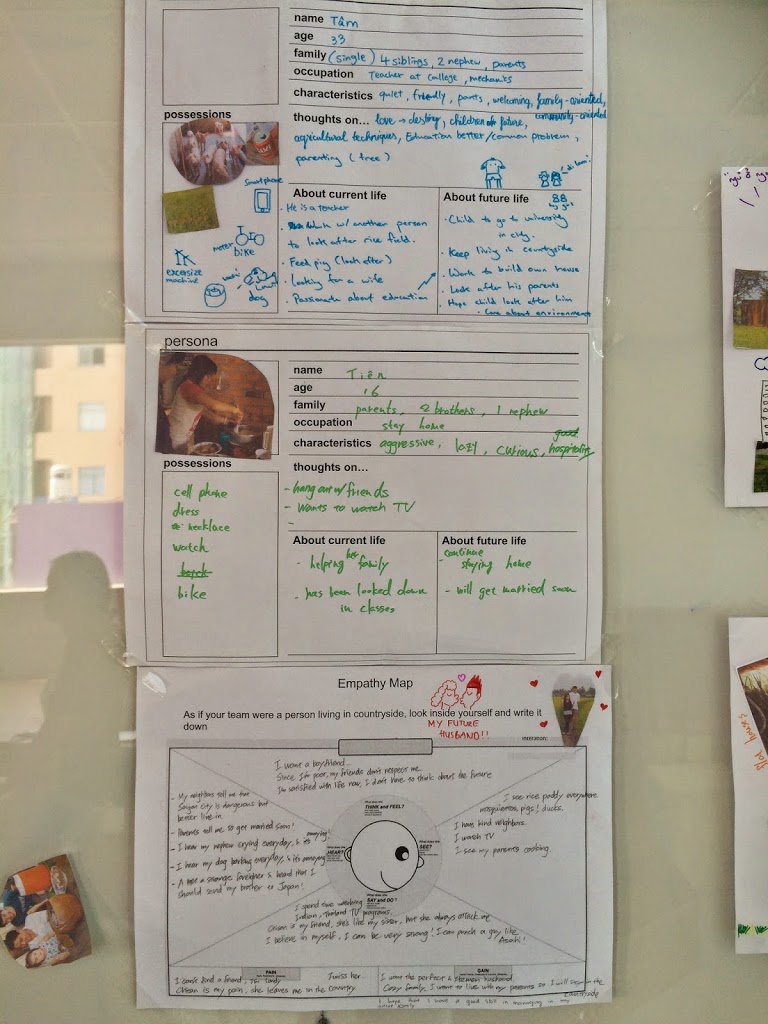 name Tâm
age 33
family (single) 4 siblings, 2 nephew, parents
occupation Teacher at College, mechanics
characteristics quiet, friendly, pants, welcoming, family-oriented,
community-oriented
possessions
thoughts on... love → destiny, children future,
agricultural techniques, Education better/common problem,
parenting (tree)
Smart phone
motor bike
excersize machine
dog
About current life
- He is a teacher
w/ another person
to look after rice field.
- Feed pig (look after)
- Looking for a wife
- Passionate about education
About future life
- Child to go to university
in city.
- Keep living in countryside
- Work to build own house
- Look after his parents
- Hope child look after him
- Care about environment
persona
name Tiên
age 16
family parents, 2 brothers, 1 nephew
occupation stay home
characteristics aggressive, lazy, curious, good hospitality
possessions
cell phone
dress
necklace
watch
bike
thoughts on...
- hang out w/ friends
- Wants to watch TV
-
About current life
- helping her family
- has been looked down
in classes
About future life
- continue staying home
- will get married soon
Empathy Map
As if your team were a person living in countryside, look inside yourself and write it
down
MY FUTURE
HUSBAND!!
I wanna a boyfriend...
Since I'm poor, my friends don't respect me.
I'm satisfied with life now, I don't have to think about the future
- My neighbors tell me that
Saigon city is dangerous but
better live in.
- Parents tell me to get married soon!
- I hear my nephew crying everyday, & it's annoying!
- I hear my dog barking everyday, & it's annoying
strange foreigner & heard that I
should send my brother to Japan!
THINK and FEEL?
HEAR?
SEE?
SAY and DO?
I see rice paddy everywhere
mosquitoes, pigs! ducks.
I have kind neighbors
I watch TV
I see my parents cooking
I spend time watching
Indian, Thailand TV programs.
is my friend, she's like my sister, but she always attack me
I believe in myself, I can be very strong! I can punch a guy like
Asahi!
PAIN
I can't find a friend, I'm lonely
is my pain, she leaves me in the country
I miss her
GAIN
I want the perfect & husband
Cozy family, I want to live with my parents so I will stay in the
countryside
I hope that I have a good skill in managing in my
houses